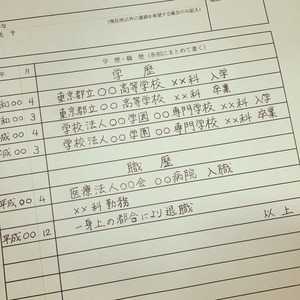 (現住所以外に連絡を希望する場合のみ記入)
年 月 学 歴・職 歴 (各別にまとめて書く)
学 歴
和○○ 4 東京都立○○高等学校 ××科 入学
和○○ 3 東京都立○○高等学校 ××科 卒業
平成○○ 4 学校法人○○学園○○専門学校 ××科 入学
平成○○ 3 学校法人○○学園○○専門学校 ××科 卒業
職 歴
平成○○ 4 医療法人○○会 ○○病院 入職
××科勤務
平成○○ 12 一身上の都合により退職
以上